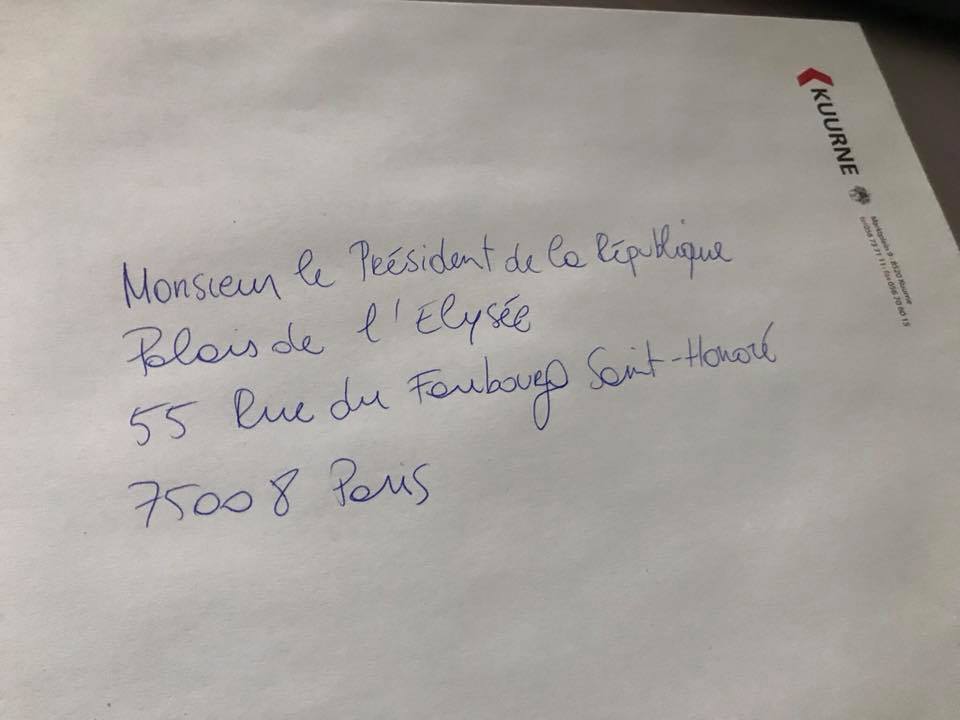 KUURNE
Marktplein 9 - 8520 Kuurne
tel 056 73 71 11 - fax 056 70 60 15
Monsieur le Président de la République
Palais de l'Elysée
55 Rue du Faubourg Saint-Honoré
75008 Paris